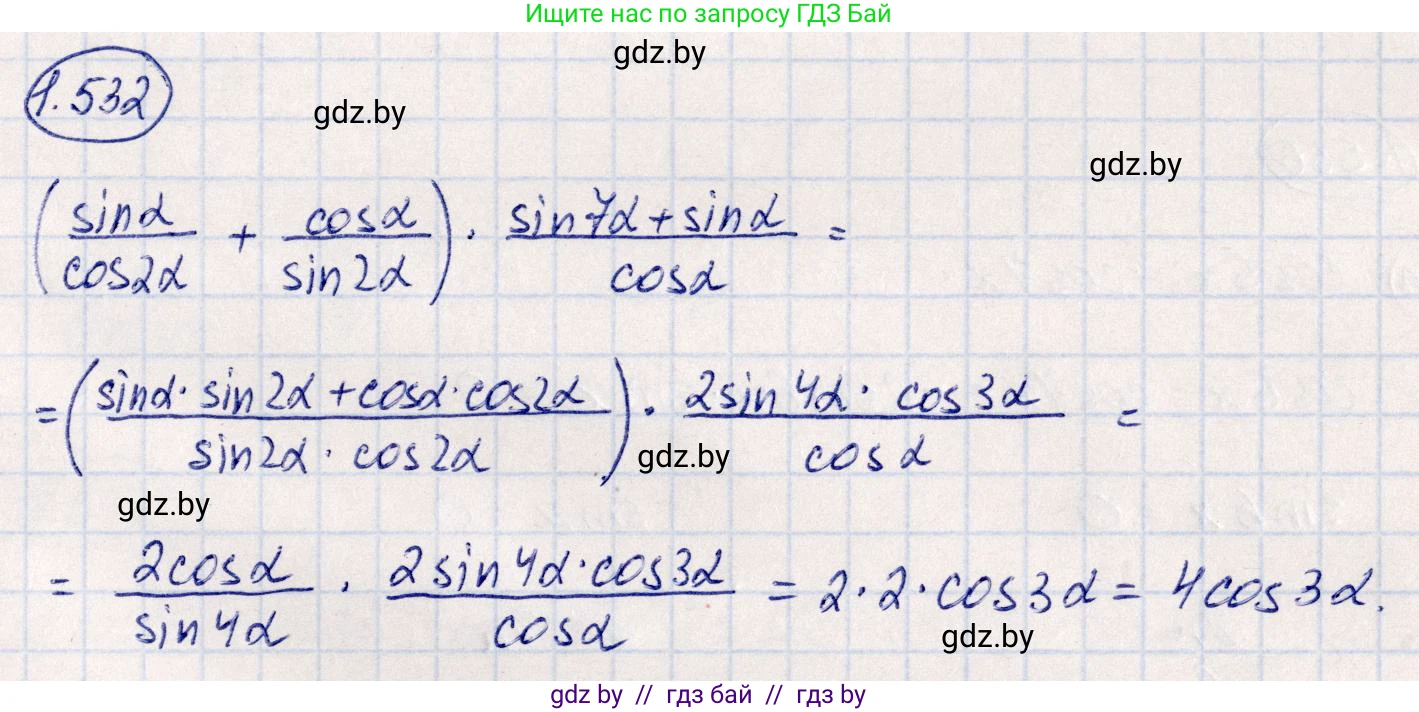 Ищите нас по запросу ГДЗ Бай
gdz.by
1.532
gdz.by
gdz.by
(sinα/cos2α + cosα/sin2α) · (sin7α + sinα)/cosα =
= (sinα · sin2α + cosα · cos2α)/(sin2α · cos2α) · (2sin4α · cos3α)/cosα =
gdz.by
gdz.by
= 2cosα/sin4α · (2sin4α · cos3α)/cosα = 2·2·cos3α = 4cos3α.
gdz.by
gdz by // гдз бай // гдз by